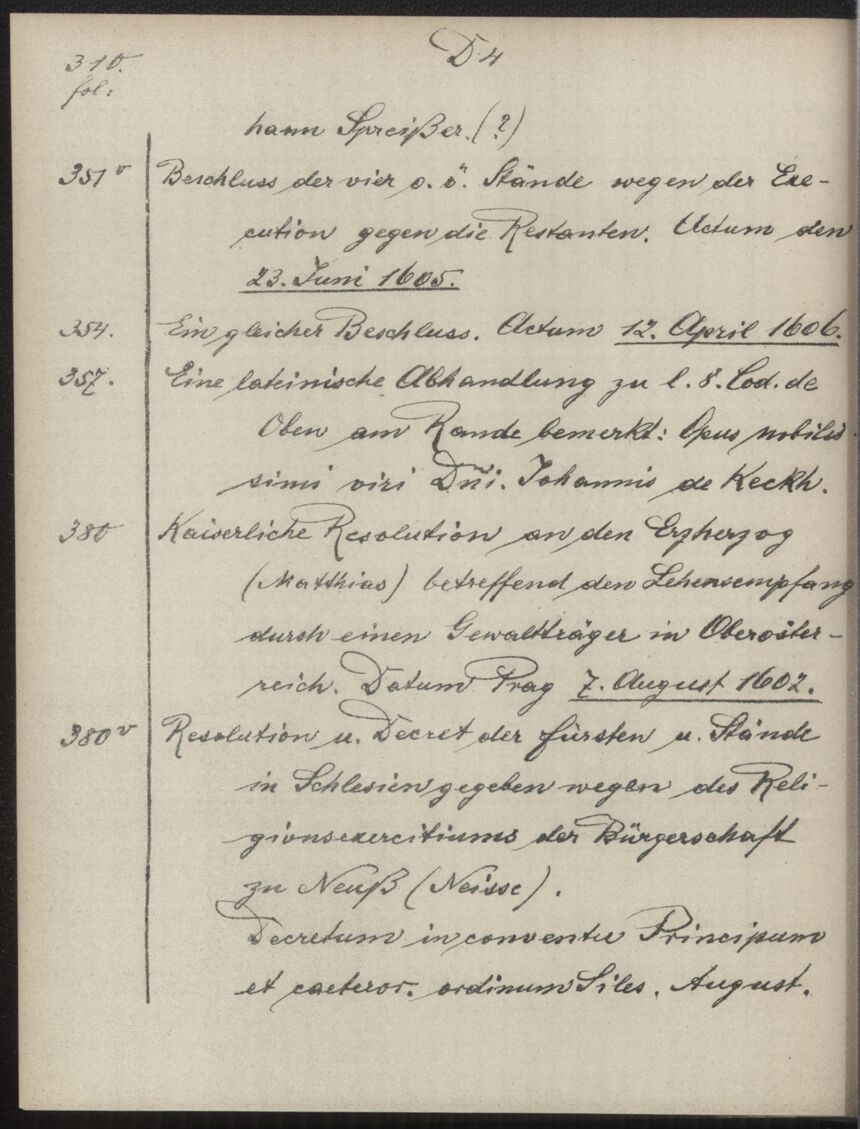 310.
D 4
fol:
hann Spreißer. (?)
351 v Beschluss der vier o. ö. Stände wegen der Exe-
cution gegen die Restanten. Actum den
23. Juni 1605.
354. Ein gleicher Beschluss. Actum 12. April 1606.
357. Eine lateinische Abhandlung zu l. 8. Cod. de
Oben am Rande bemerkt: Opus nobilis
simi viri Dñi. Johannis de Keckh.
380 Kaiserliche Resolution an den Erzherzog
(Matthias) betreffend den Lehensempfang
durch einen Gewaltträger in Oberöster-
reich. Datum Prag 7. August 1602.
380 v Resolution u. Decret der Fürsten u. Stände
in Schlesien gegeben wegen des Reli-
gionsexercitiums der Bürgerschaft
zu Neuß (Neisse).
Decretum in conventu Principum
et caeteror. ordinum Siles. August.